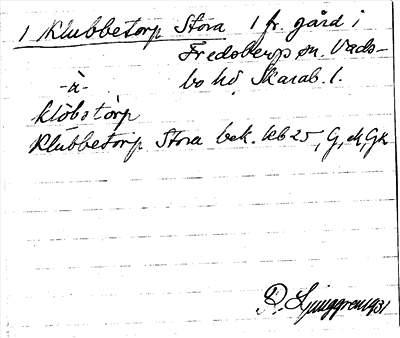 1 Klubbetorp Stora 1 fr. gård i
Fredsbergs sn. Vads-
-à- bo hd. Skarab. l.
klöbstòrp
Klubbetorp Stora bek. kb 25, G, ek, Gk
R. Ljunggren 1931